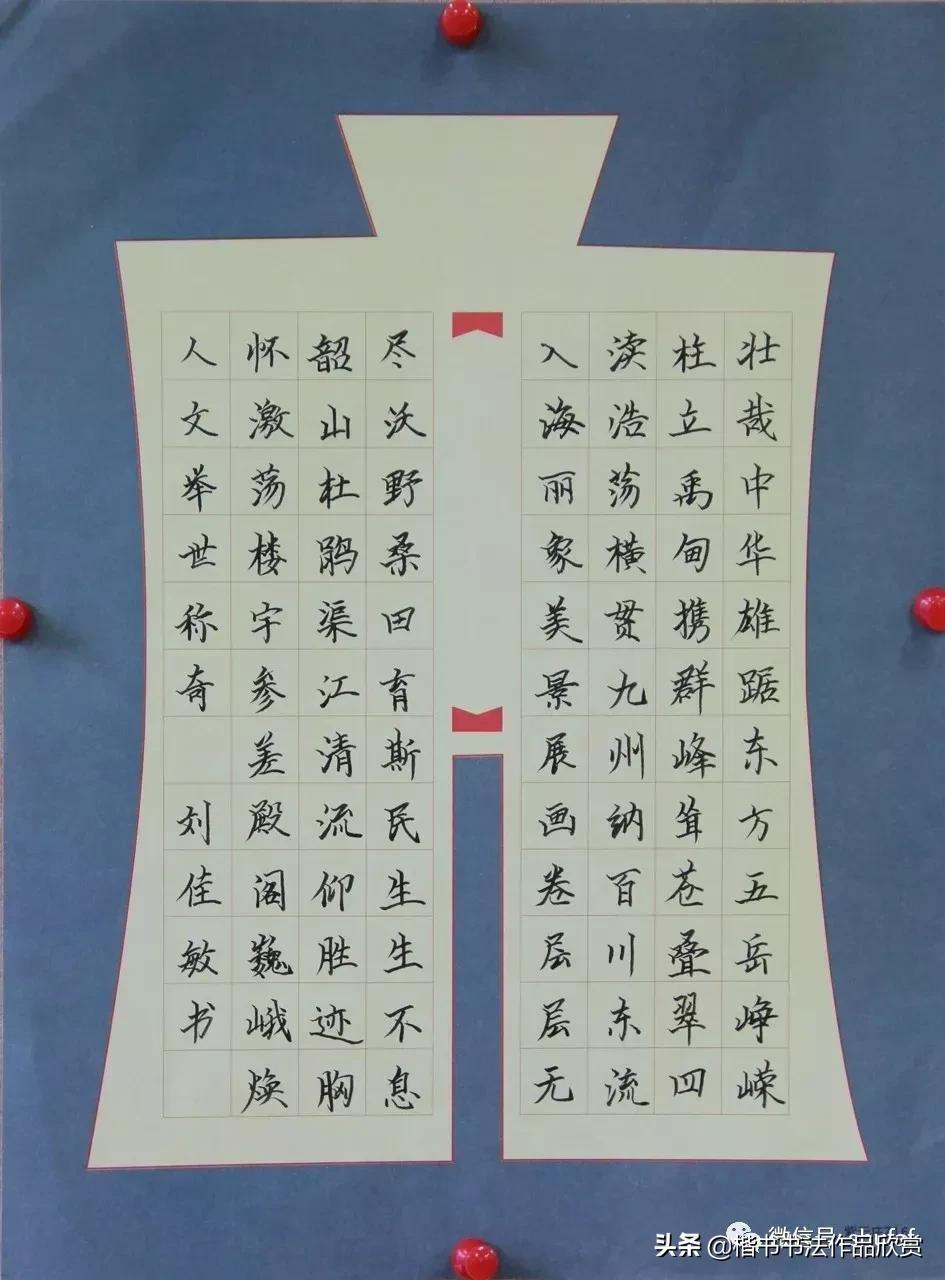 壮哉中华雄踞东方五岳峥嵘
柱立禹甸携群峰耸苍叠翠四
渎浩荡横贯九州纳百川东流
入海丽象美景展画卷层层无
尽沃野桑田育斯民生生不息
韶山杜鹃渠江清流仰胜迹胸
怀激荡楼宇参差殿阁巍峨焕
人文举世称奇
刘佳敏书
微信号: shufaf
头条 @楷书书法作品欣赏